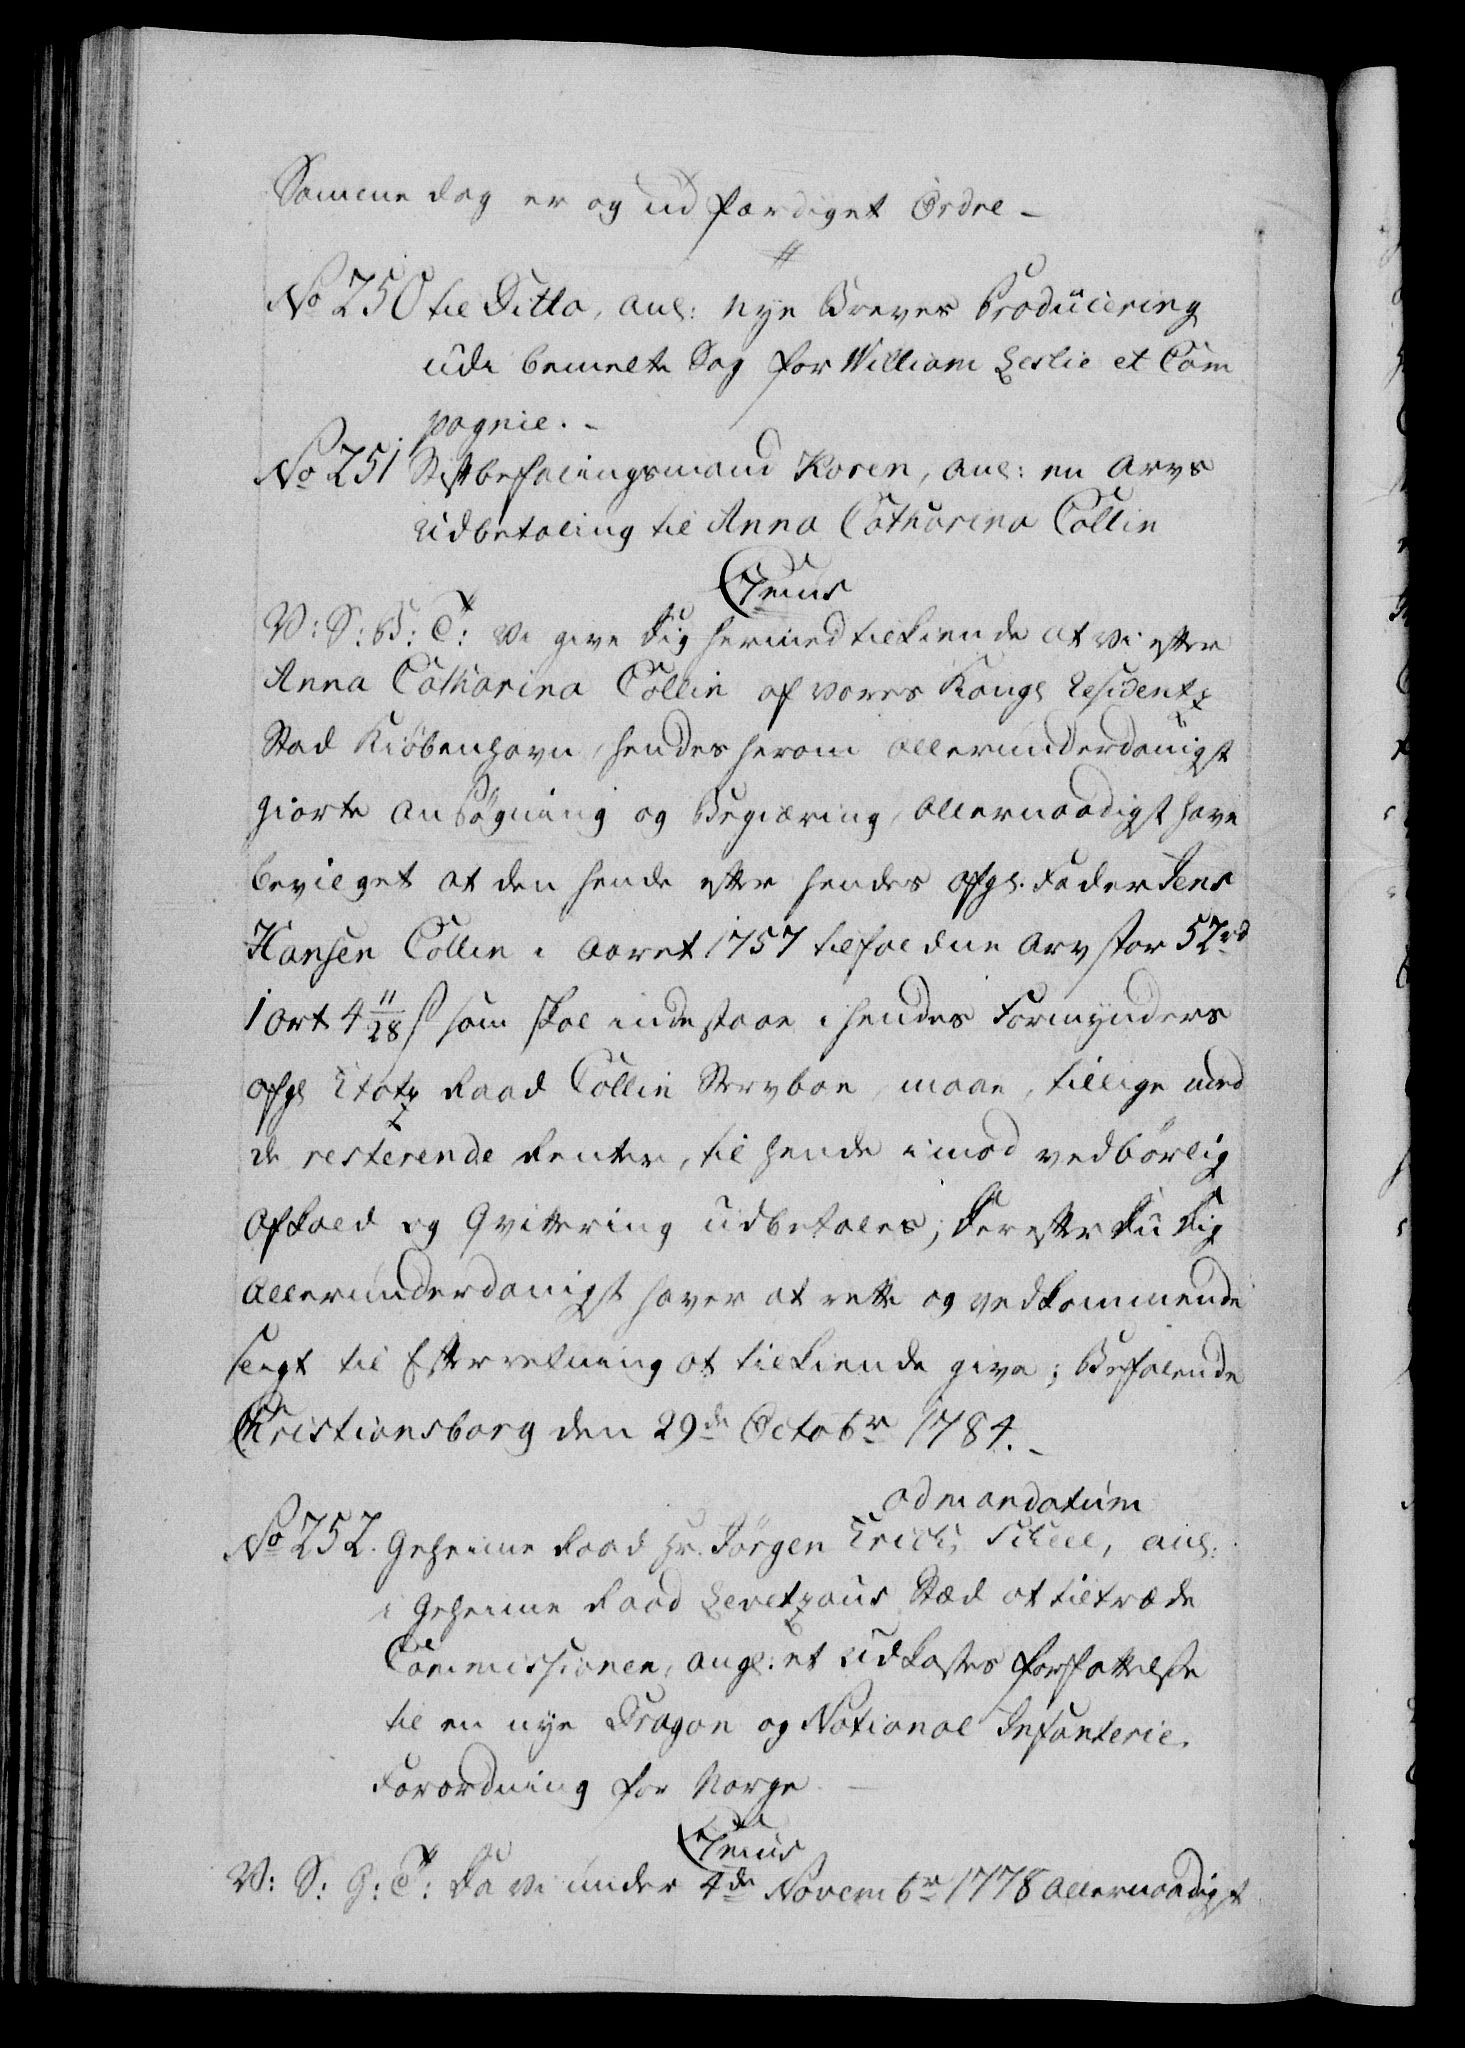 Samme dag er og udfærdiget Ordre –
No 250 til Ditto, anl: nye Breves Producering
udi bemelte Sag for William Leslie et Com
pagnie. –
No 251 Stiftbefalingsmand Koren, anl: en Arvs
Udbetaling til Anna Catharina Collin
C7enus
V: S: B: T: Vi give Dig hermed tilkiende at vi efter
Anna Catharina Collin af vores Kongl Residentz
Stad Kiøbenhavn, hendes herom allerunderdanigst
giorte Ansøgning og Begiæring, Allernaadigst have
bevilget at den hende efter hendes afgl. Fader Jens
Hansen Collin i Aaret 1757 tilfaldne Arv stor 52 rd
1 ort 4 11/28 s som skal indestaae i hendes Formynders
afgl Etatz Raad Collin Stervboe, maae, tillige med
de resterende Renter, til hende imod vedbørlig
Afkald og Qvittering udbetales; Derefter Du Dig
allerunderdanigst haver at rette og vedkommende
sligt til Efterretning at tilkiende give; Befalende
Christiansborg den 29de Octobr 1784. –
ad mandatum
No 252. Geheime Raad Hr. Jørgen Erich Scheel, anl:
i Geheime Raad Levetzaus Stæd at tiltræde
Commissionen, angl: et Udkastes Forfattelse
til en nye Dragon og National Infanterie
Forordning for Norge –
C7enus
V: S: G: T: Da vi under 4de Novembr 1778 allernaadigst